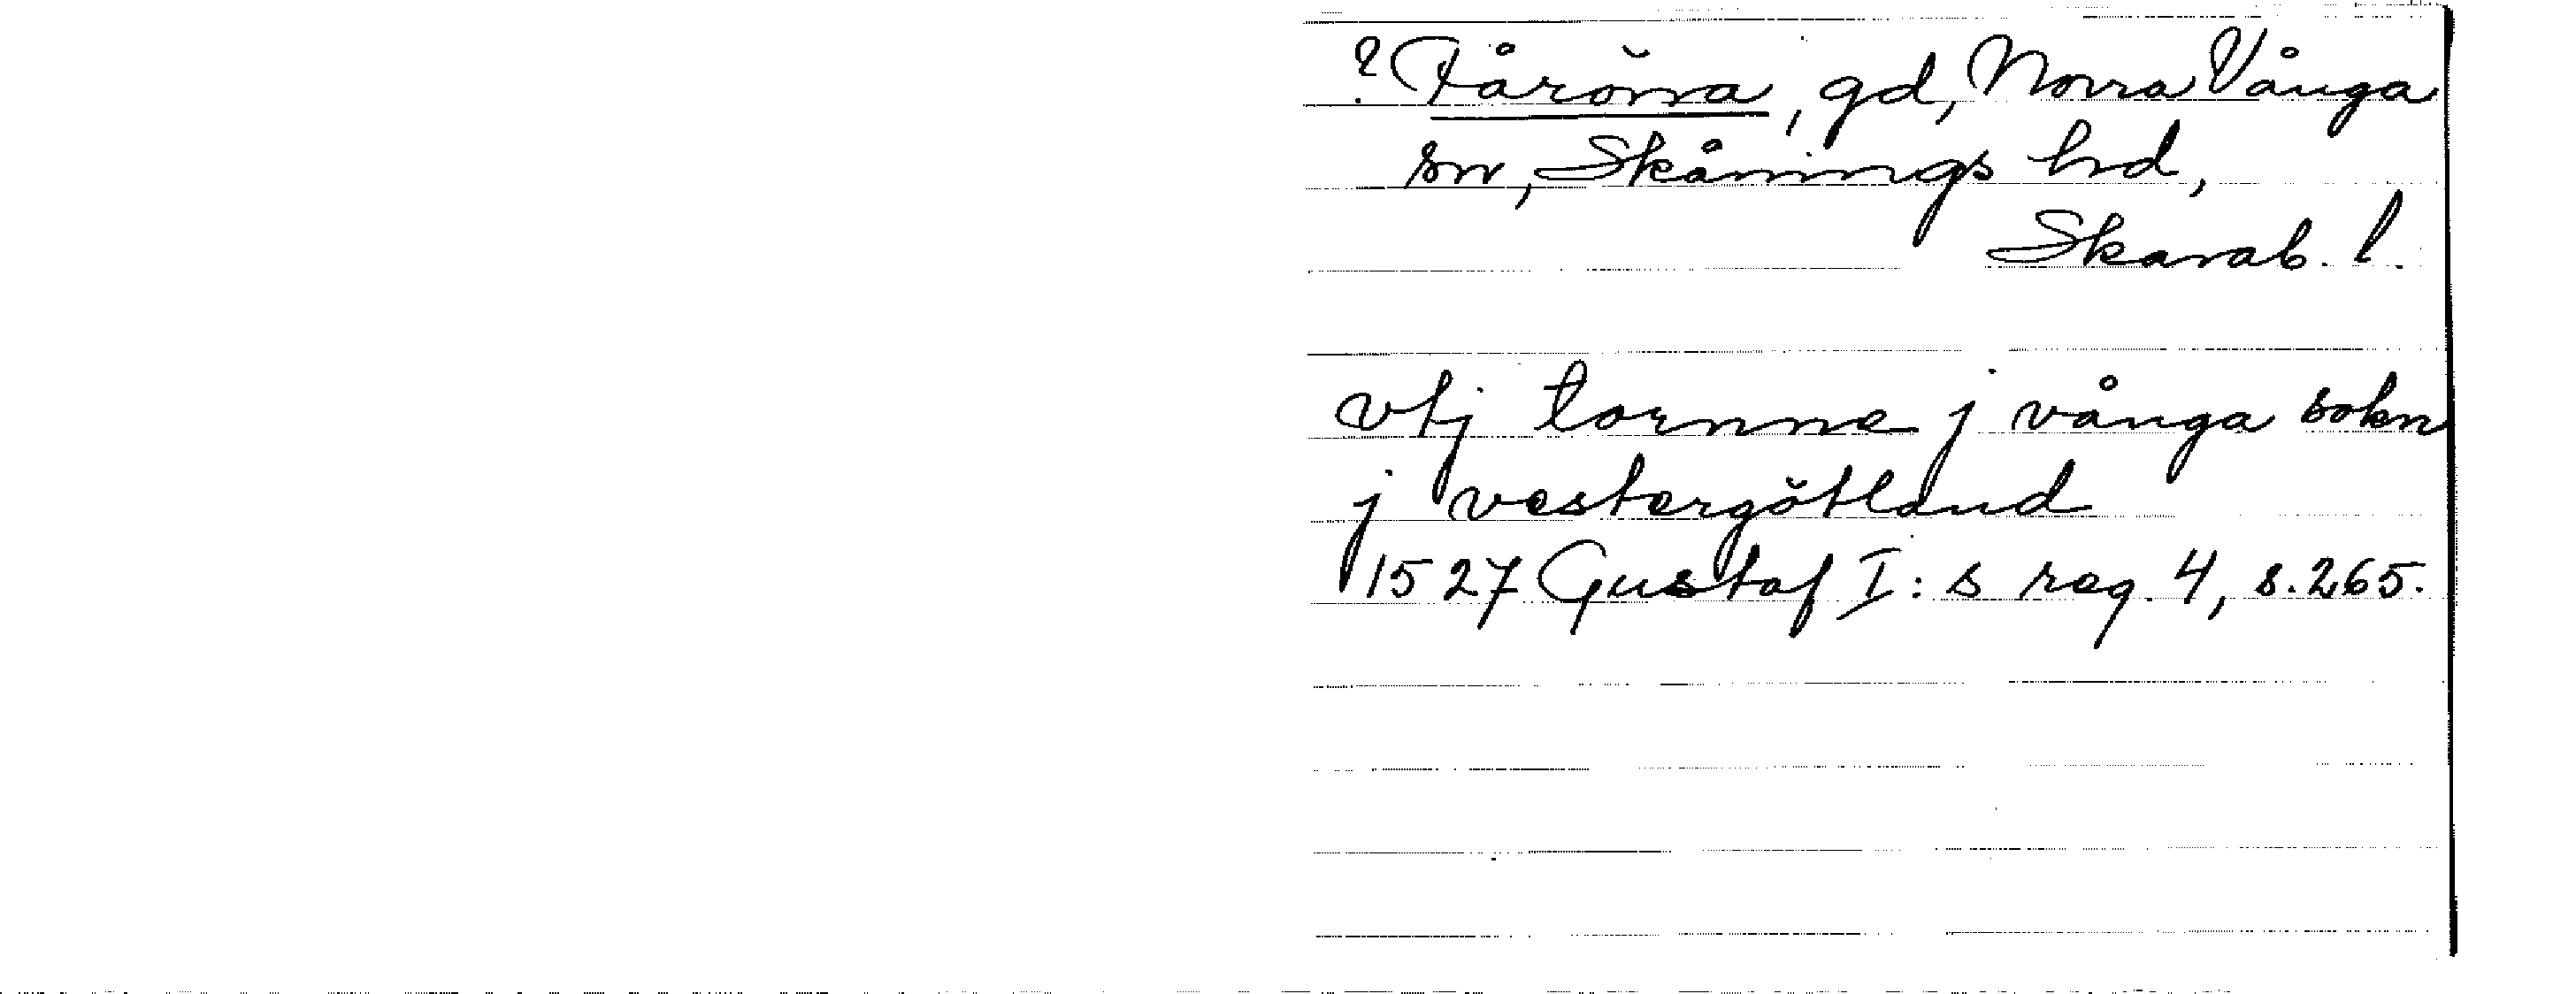 ? Fårörna, gd, Norra Vånga
sn, Skånings hd,
Skarab. l.
vtj tornne j vånga sokn
j vestergötland
1527 Gustaf I:s reg. 4, s. 265.